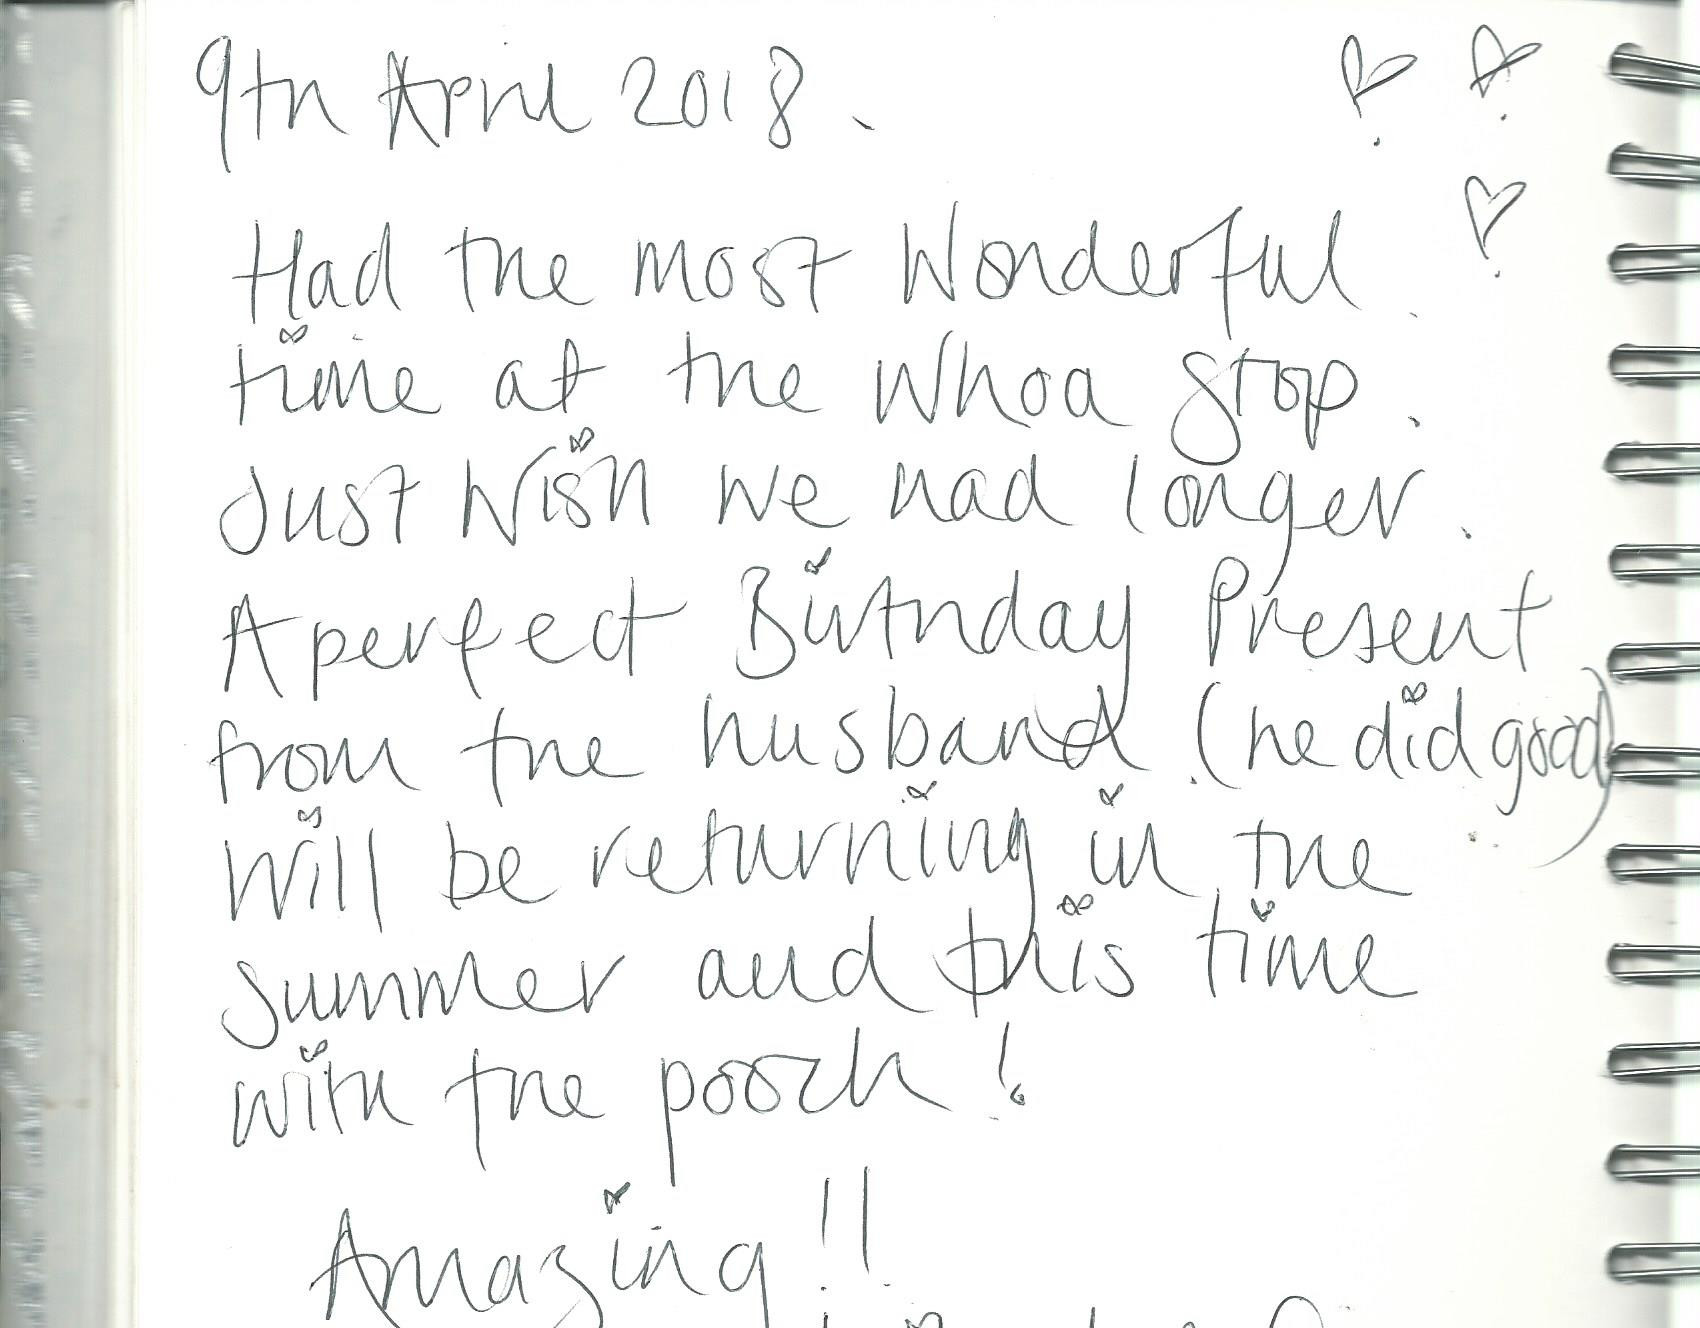 9th April 2018.
Had the most Wonderful
time at the Whoa Stop.
Just Wish we had longer.
A perfect Birthday Present
from the husband. (he did good)
Will be returning in the
summer and this time
with the pooch!
Amazing!!